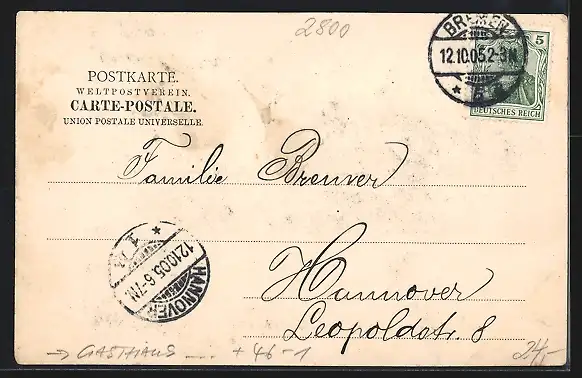 2800
BREMEN
12.10.05.2-3N
* 5 a
5
DEUTSCHES REICH
POSTKARTE.
WELTPOSTVEREIN.
CARTE-POSTALE.
UNION POSTALE UNIVERSELLE.
Familie Brenner
HANNOVER
12.10.05.6-7N.
* 1
Hannover
Leopoldstr. 8
→ GASTHAUS ..... + 46-1
24,-